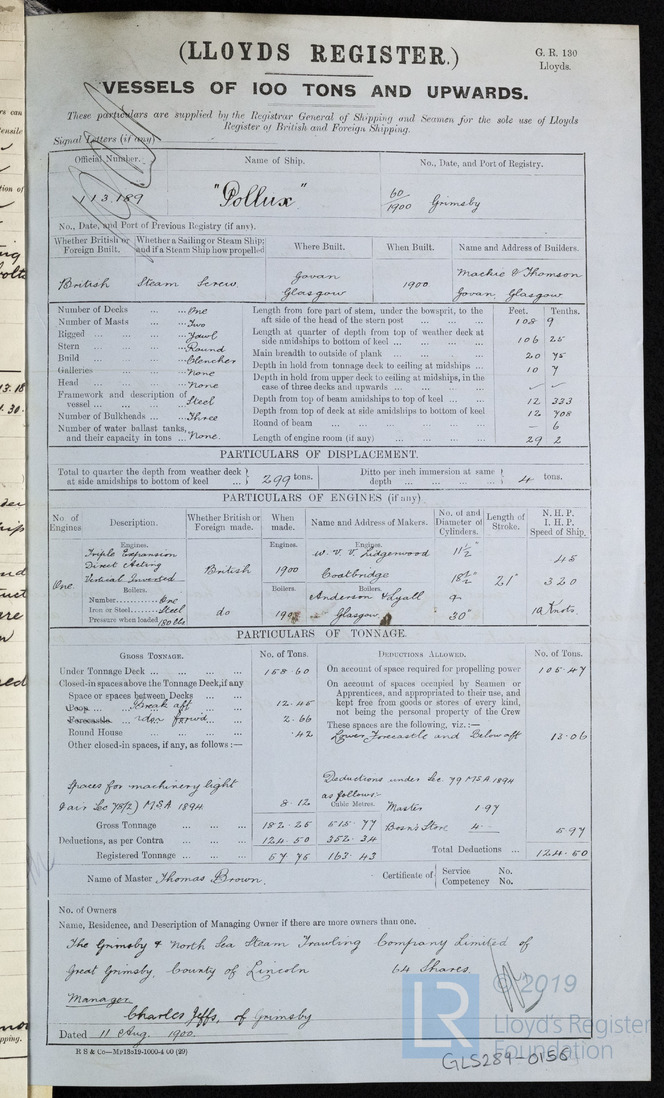 (LLOYDS REGISTER.)
G. R. 130
Lloyds.
VESSELS OF 100 TONS AND UPWARDS.
These particulars are supplied by the Registrar General of Shipping and Seamen for the sole use of Lloyds
Register of British and Foreign Shipping.
Signal Letters (if any)
Official Number. Name of Ship. No., Date, and Port of Registry.
113,189 "Pollux" 60/1900 Grimsby
No., Date, and Port of Previous Registry (if any).
Whether British or Foreign Built. Whether a Sailing or Steam Ship; and if a Steam Ship how propelled Where Built. When Built. Name and Address of Builders.
British Steam Screw Govan Glasgow 1900 Mackie & Thomson Govan, Glasgow
Number of Decks ... ... One
Number of Masts ... ... Two
Rigged ... ... ... Yawl
Stern ... ... ... Round
Build ... ... ... Clencher
Galleries ... ... None
Head ... ... ... None
Framework and description of vessel ... ... ... Steel
Number of Bulkheads ... ... Three
Number of water ballast tanks, and their capacity in tons ... None
Feet. Tenths.
Length from fore part of stem, under the bowsprit, to the aft side of the head of the stern post ... ... 108 9
Length at quarter of depth from top of weather deck at side amidships to bottom of keel ... ... 106 25
Main breadth to outside of plank ... ... ... 20 75
Depth in hold from tonnage deck to ceiling at midships ... 10 7
Depth in hold from upper deck to ceiling at midships, in the case of three decks and upwards ... ...
Depth from top of beam amidships to top of keel ... ... 12 333
Depth from top of deck at side amidships to bottom of keel 12 708
Round of beam ... ... ... — 6
Length of engine room (if any) ... ... ... 29 2
PARTICULARS OF DISPLACEMENT.
Total to quarter the depth from weather deck at side amidships to bottom of keel ... 299 tons. Ditto per inch immersion at same depth ... ... ... 4 tons.
PARTICULARS OF ENGINES (if any)
No of Engines. Description. Whether British or Foreign made. When made. Name and Address of Makers. No. of and Diameter of Cylinders. Length of Stroke. N. H. P. I. H. P. Speed of Ship.
Engines. Engines. Engines.
One Triple Expansion Direct Acting Vertical Inverted British 1900 W. V. V. Lidgerwood Coatbridge 11½" 18½" 21" 45 320
Boilers. Boilers. Boilers.
Number............One
Iron or Steel......Steel
Pressure when loaded 180 lbs
do Anderson & Lyall Glasgow 30" 10 Knots.
PARTICULARS OF TONNAGE.
GROSS TONNAGE. No. of Tons. DEDUCTIONS ALLOWED. No. of Tons.
Under Tonnage Deck ... ... ... 158.60
Closed-in spaces above the Tonnage Deck, if any
Space or spaces between Decks ... ...
Poop... Break aft ... 12.45
Forecastle ... forwd ... 2.66
Round House ... ... .42
Other closed-in spaces, if any, as follows:—
Spaces for machinery light
& air Sec 78(2) MSA 1894 8.12
Gross Tonnage ... ... ... 182.25
Deductions, as per Contra ... ... 124.50
Registered Tonnage ... ... ... 57.75
On account of space required for propelling power 105.47
On account of spaces occupied by Seamen or Apprentices, and appropriated to their use, and kept free from goods or stores of every kind, not being the personal property of the Crew
These spaces are the following, viz.:—
Lower Forecastle and Below aft 13.06
Deductions under Sec. 79 MSA 1894
as follows:-
Cubic Metres.
515.77
352.34
163.43
Master 1.97
Bosn's Store 4.— 5.97
Total Deductions ... 124.50
Name of Master Thomas Brown. Certificate of Service No. Competency No.
No. of Owners
Name, Residence, and Description of Managing Owner if there are more owners than one.
The Grimsby & North Sea Steam Trawling Company Limited of
Great Grimsby, County of Lincoln 64 Shares.
Manager
Charles Jeffs, of Grimsby
Dated 11 Aug. 1900
R S & Co
© 2019
LR
Lloyd's Register
Foundation
GLS289-0156